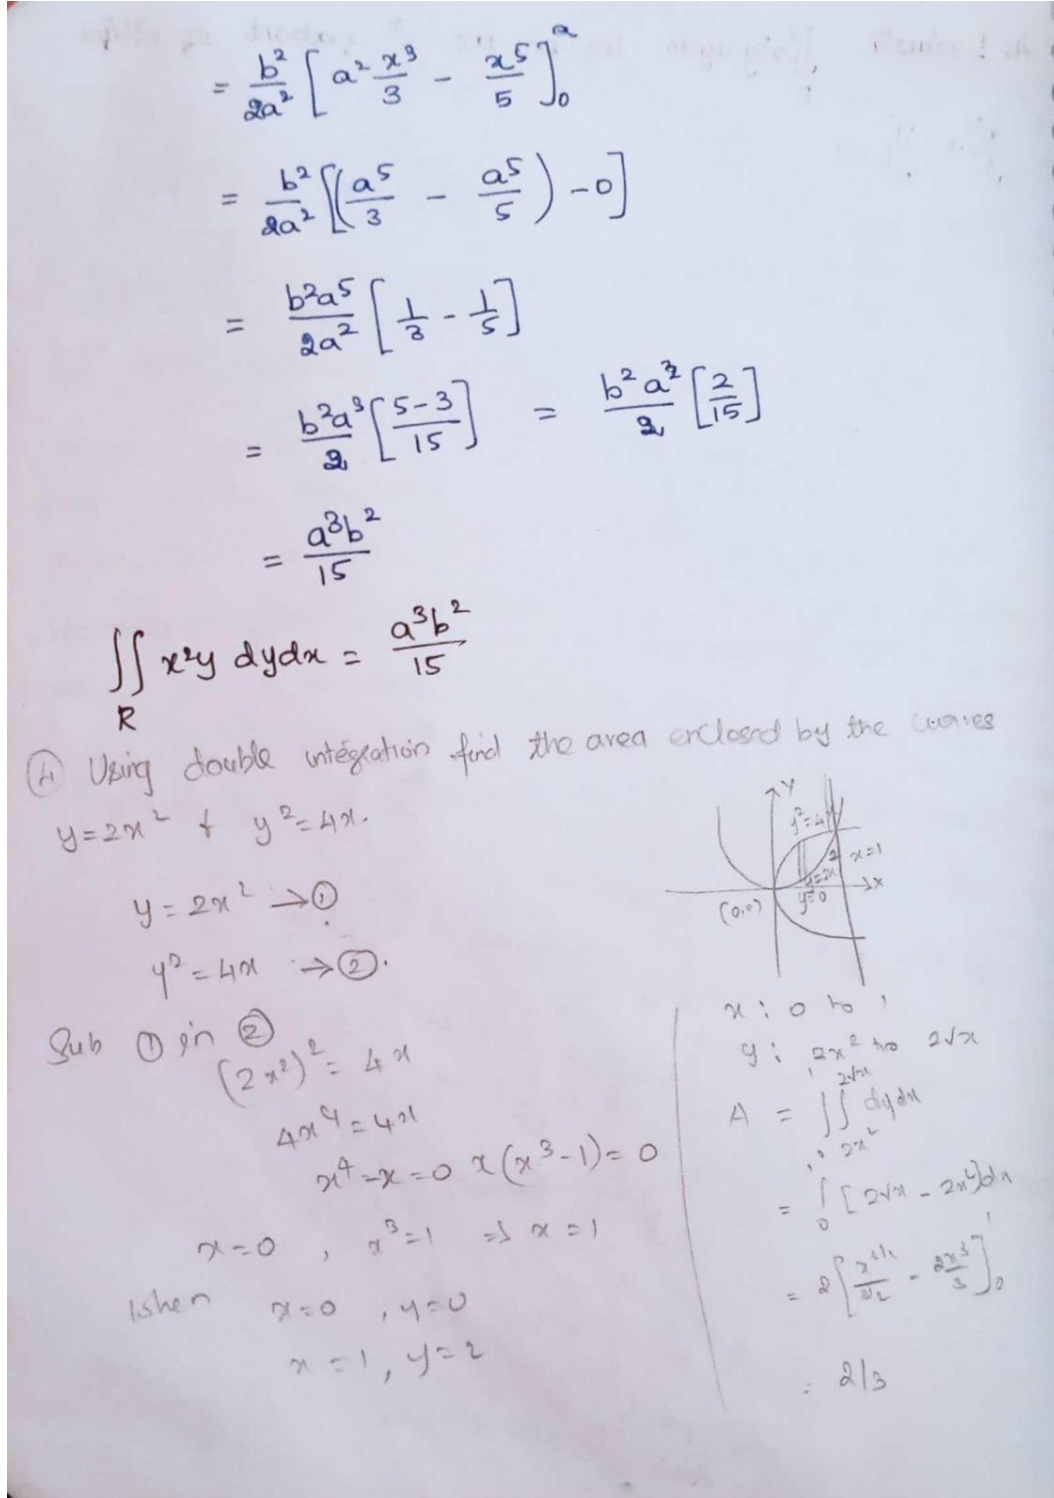 = b²/2a² [ a² x³/3 - x⁵/5 ]₀ᵃ
= b²/2a² [ ( a⁵/3 - a⁵/5 ) - 0 ]
= b²a⁵/2a² [ 1/3 - 1/5 ]
= b²a³/2 [ 5-3/15 ] = b²a³/2 [ 2/15 ]
= a³b²/15
∬ x²y dydx = a³b²/15
R
④ Using double integration find the area enclosed by the curves
y=2x² & y²=4x.
y = 2x² → ①
y² = 4x → ②.
Sub ① in ②
(2x²)² = 4x
4x⁴ = 4x
x⁴-x=0 x(x³-1)=0
x=0 , x³=1 ⇒ x=1
When x=0 , y=0
x=1, y=2
Y
y²=4x
x=1
2
y=2x²
X
(0,0)
y=0
x : 0 to 1
y : 2x² to 2√x
A = ∫₀¹ ∫ 2x² 2√x dydx
= ∫₀¹ [2√x - 2x²]dx
= 2 [ x^3/2 / 3/2 - 2x³/3 ]₀¹
= 2/3